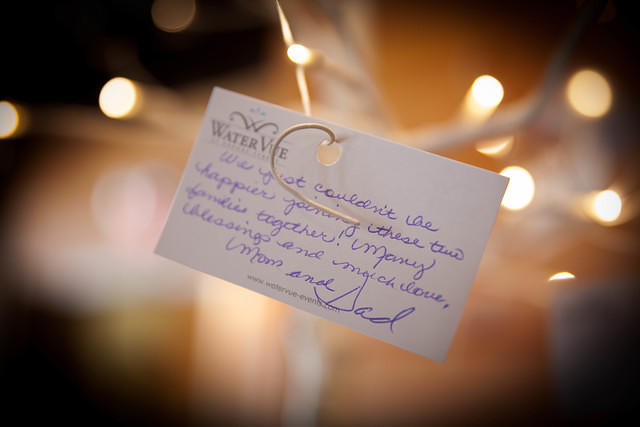 WATERVUE
We just couldn't be
happier joining these two
families together! Many
blessings and much love,
Mom and Dad
www.watervue-events.com